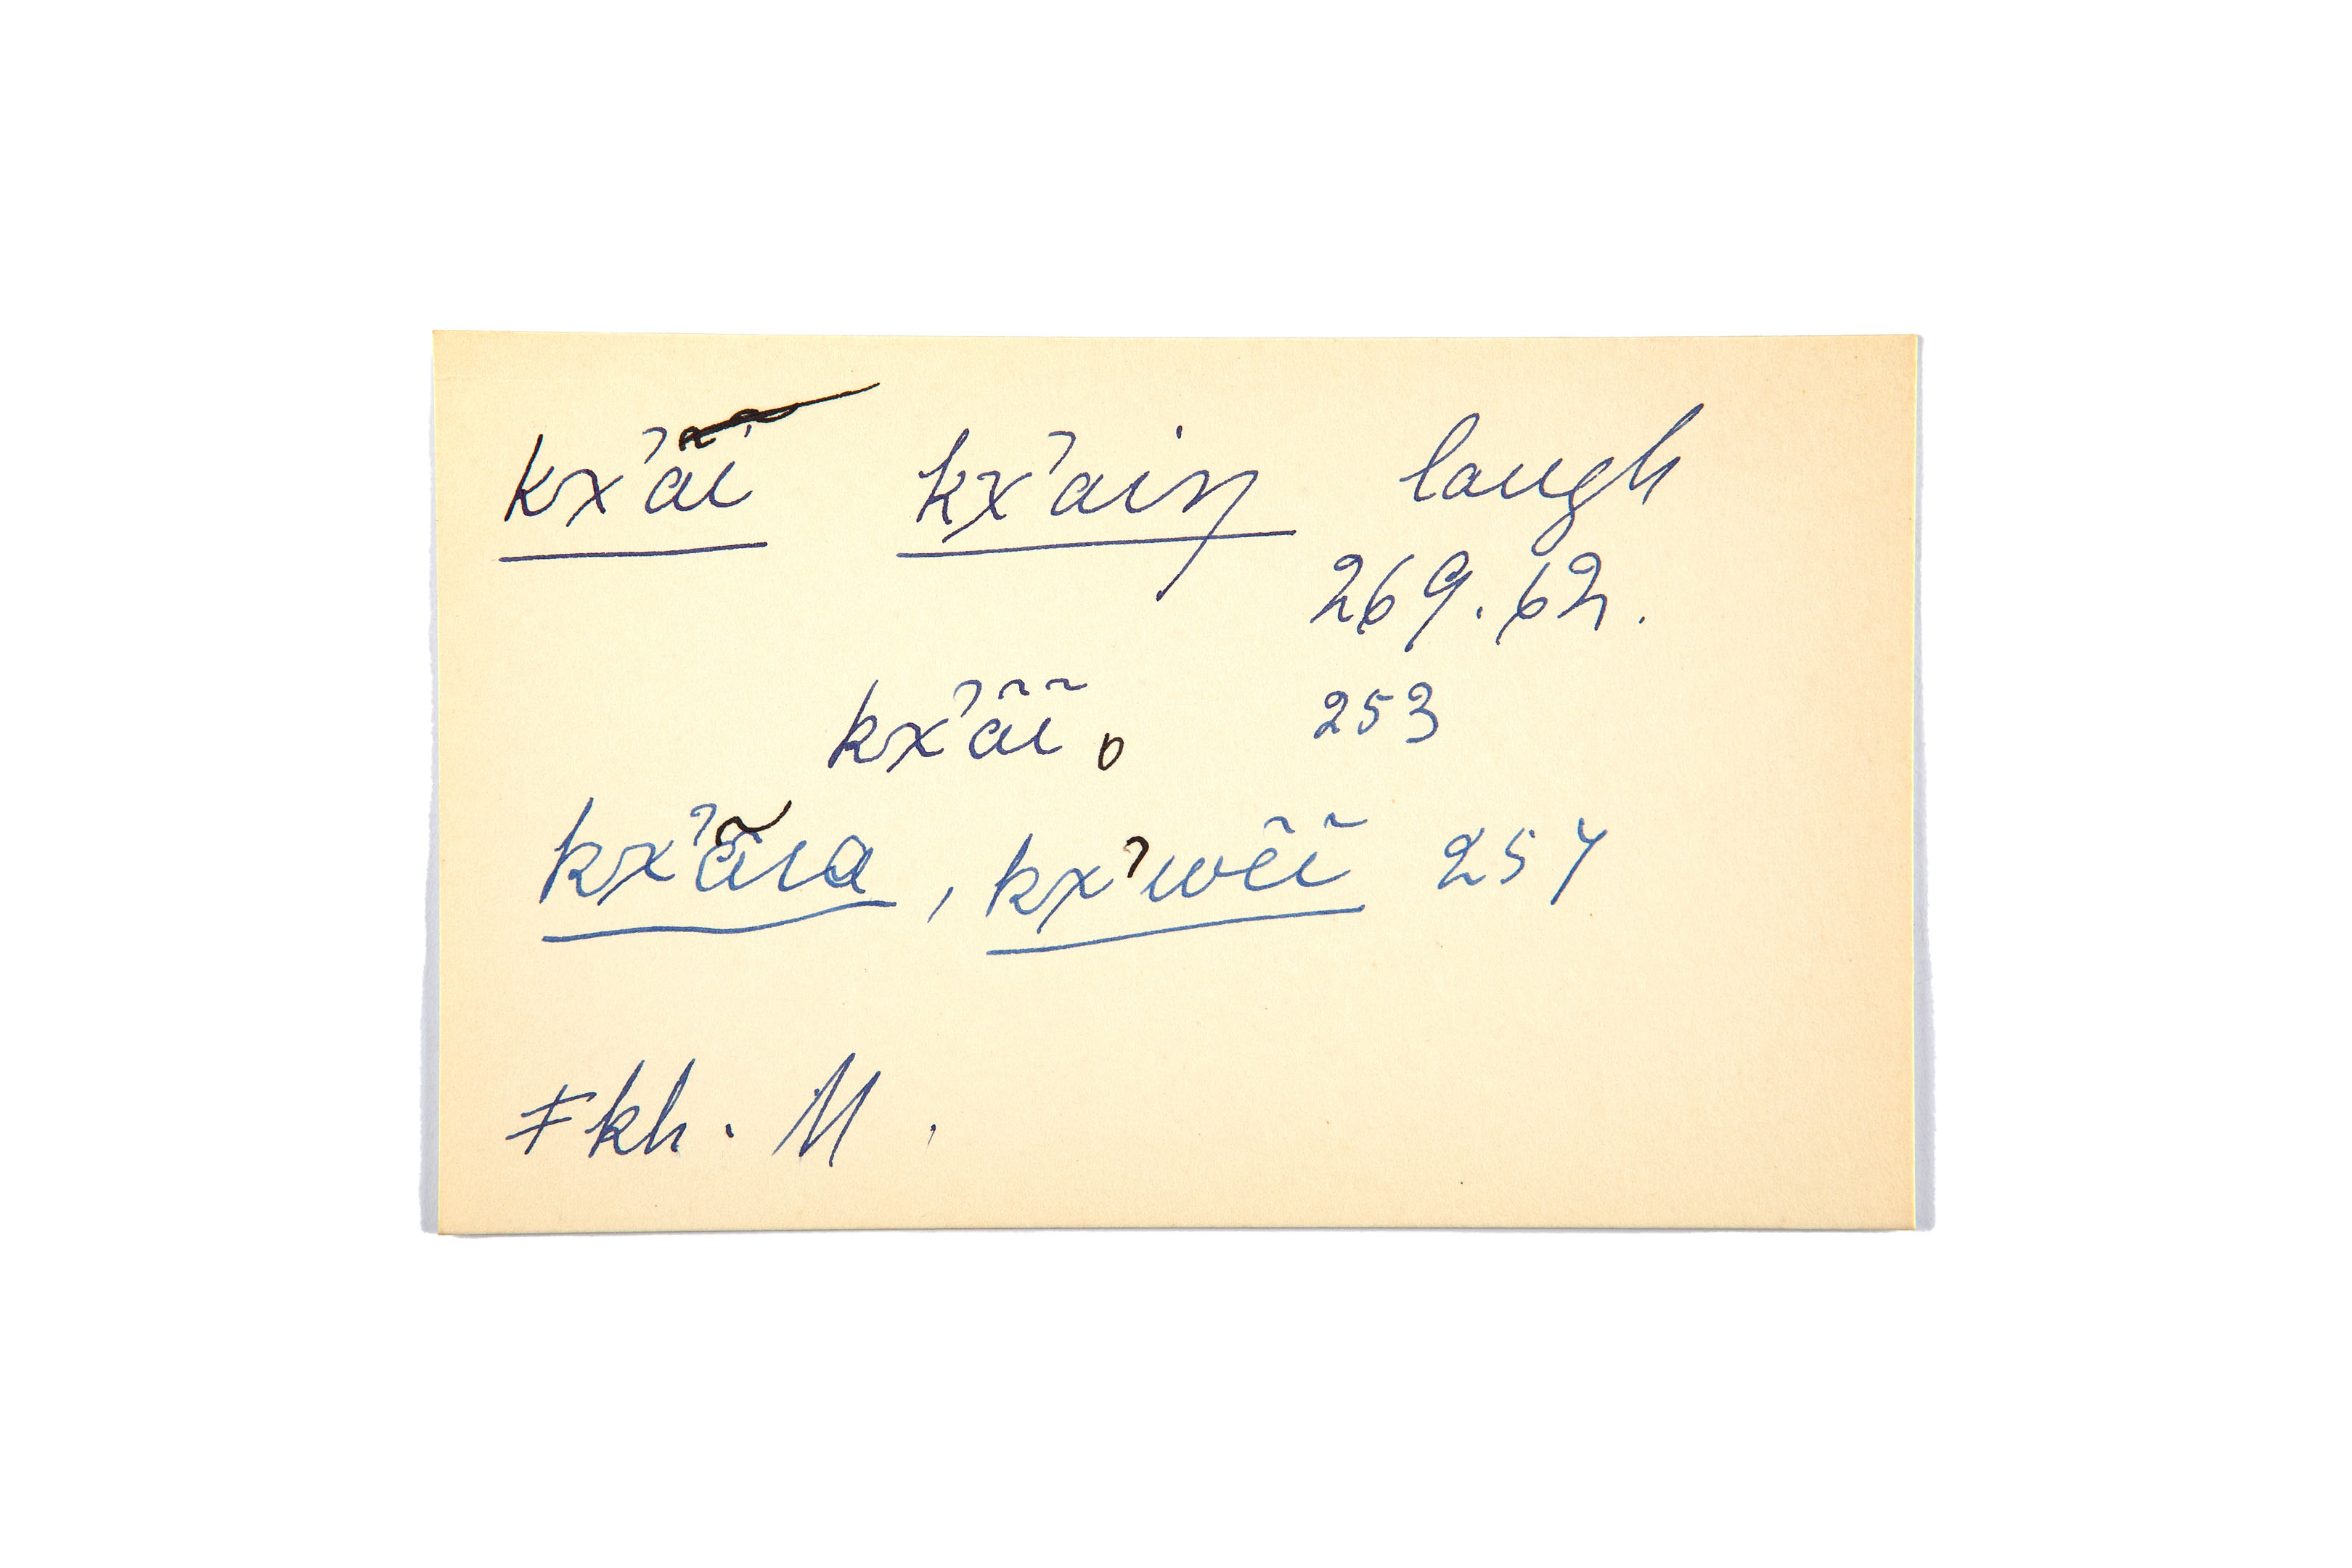 kxʼãi kxʼaiŋ laugh
269.62.
kxʼãĩ 253
kxʼãɩa, kxʼwẽĩ 257
ǂkh. M.